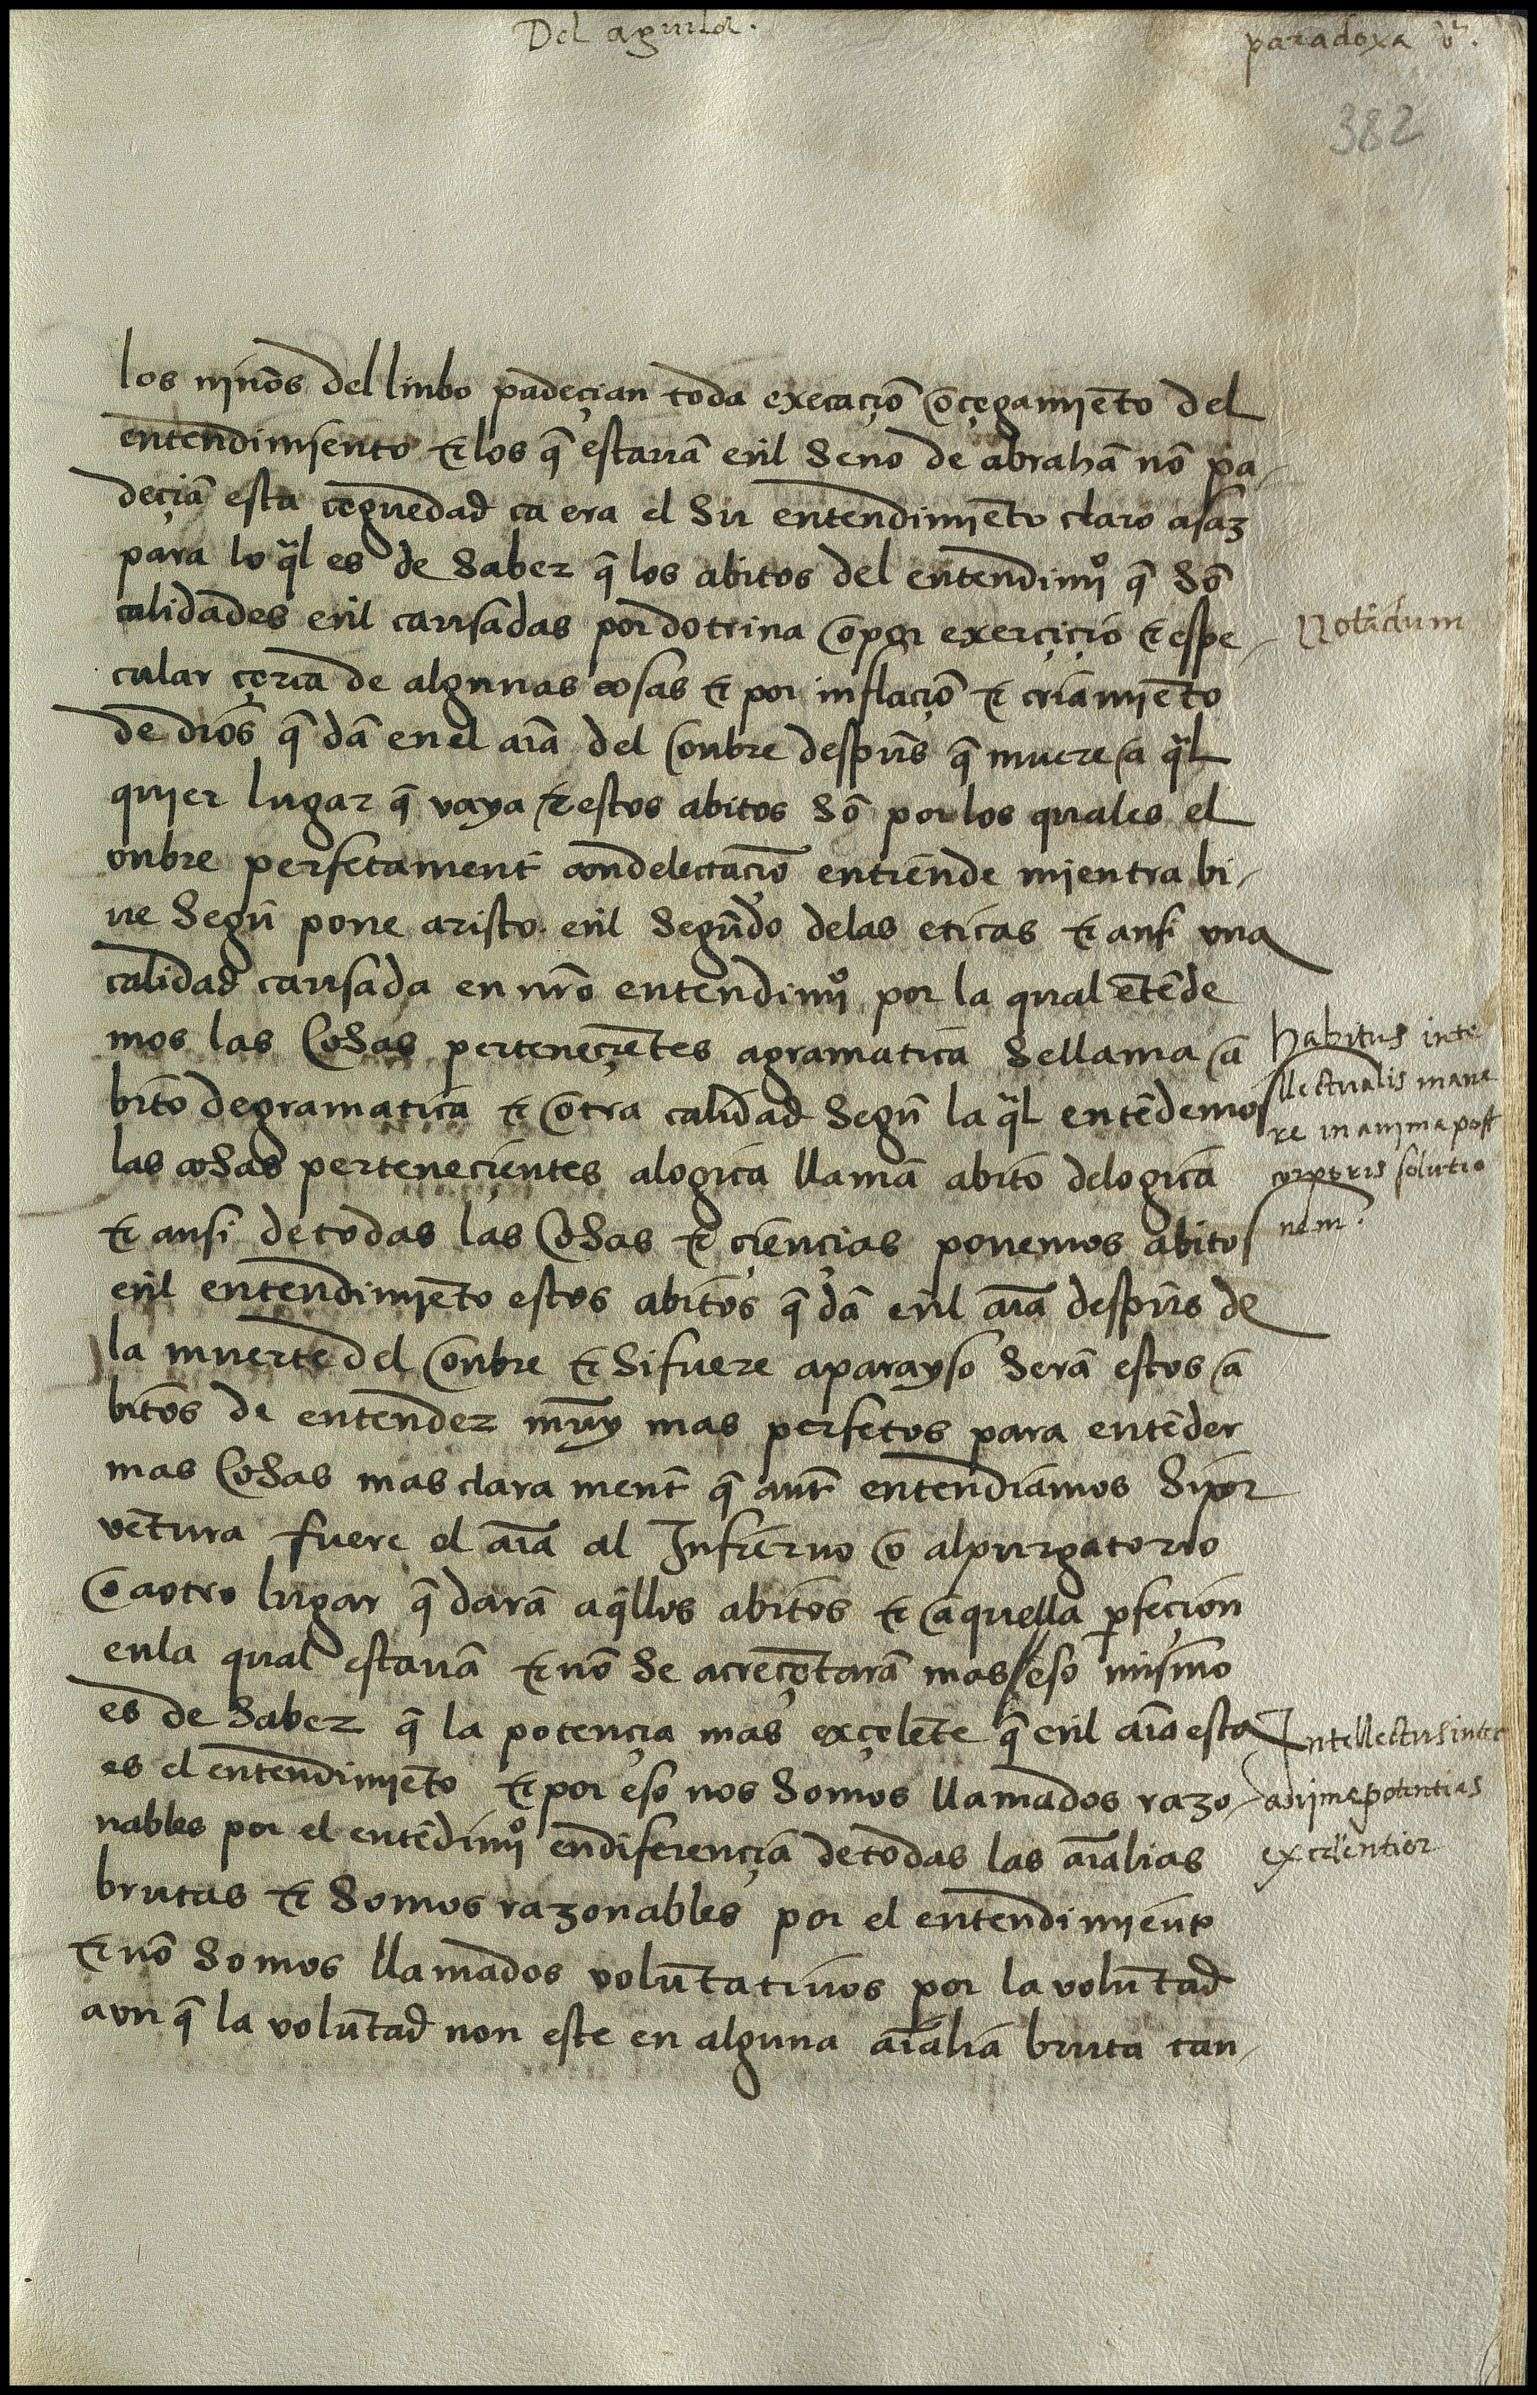 Del aguila.
paradoxa v.
382
los niños del linbo padeçian toda execaçiõ o çegamiẽto del
entendimiento ⁊ los q̃ estauã enl seno de abrahã nõ pa-
deçiã esta çeguedad ca era el su entendimiẽto claro asaz
para lo q̃l es de saber q̃ los abitos del entendimjº q̃ sõ
calidades enl causadas por dotrina o por exerçiçio ⁊ espe-
cular çerca de algunas cosas ⁊ por inflaçiõ ⁊ criamiẽto
de dios q̃ dã en el aĩa del onbre despũs q̃ muere a q̃l
quier lugar q̃ vaya ⁊ estos abitos sõ por los quales el
onbre perfetament con delectaçiõ entiende mientra bi-
ue segũ pone aristo. enl segũdo delas eticas ⁊ ansi vna
calidad causada en nr̃o entendimjº por la qual ẽtẽde
mos las cosas perteneçiẽtes a gramatica se llama a
bito de gramatica ⁊ otra calidad segũ la q̃l entẽdemos
las cosas perteneçientes a logica llamã abito de logica
⁊ ansi de todas las cosas ⁊ çiençias ponemos abitos
enl entendimiẽto estos abitos q̃ dã enl aĩa despũs de
la muerte del onbre ⁊ si fuere a parayso serã estos a
bitos de entender muy mas perfetos para entẽder
mas cosas mas clara ment q̃ ant entendiamos si por
vẽtura fuere el aĩa al Infierno o al purgatorio
o a otro lugar q̃ darã aq̃llos abitos ⁊ a quella p̱feçion
en la qual estauã ⁊ nõ se acreçẽtarã mas // eso mismo
es de saber q̃ la potençia mas exçelẽte q̃ enl aĩa esta
es el entendimiẽto ⁊ por eso nos somos llamados razo-
nables por el entẽdimjº en diferençia de todas las aĩalias
brutas ⁊ somos razonables por el entendimiento
⁊ nõ somos llamados volũtatiuos por la volũtad
avn q̃ la volũtad non este en alguna aĩalia bruta tan-
Notãdum
habitus inte
llectualis mane
re in anima post
corporis solutio
nem.
Intellectus inter
anime potentias
excellentior